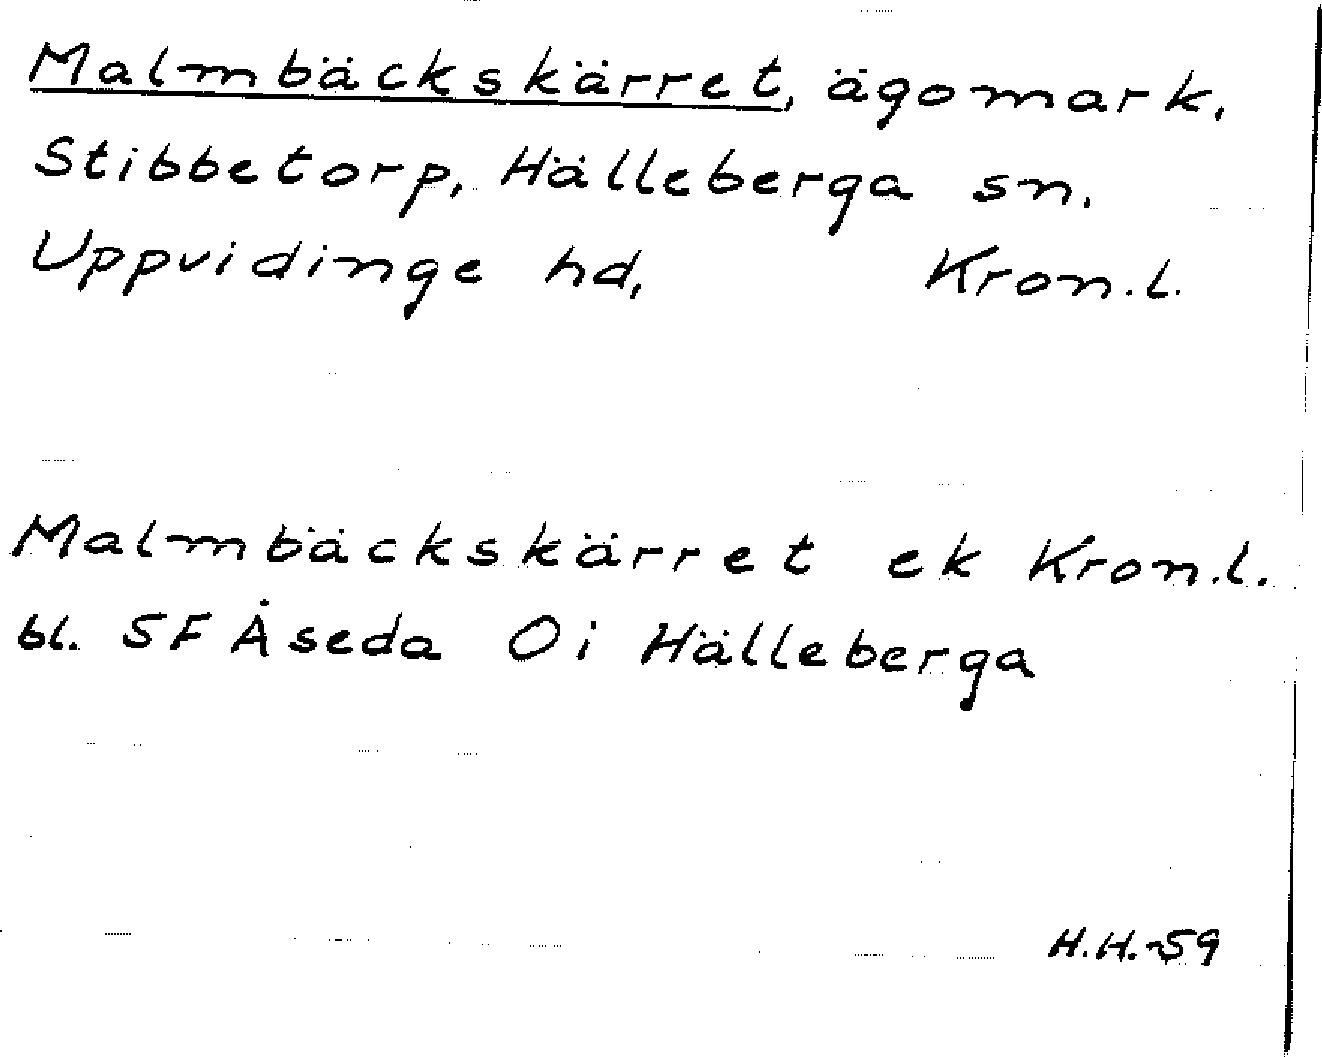 Malmbäckskärret, ägomark,
Stibbetorp, Hälleberga sn.
Uppvidinge hd, Kron.l.
Malmbäckskärret ek Kron.l.
bl. 5F Åseda Öi Hälleberga
H.H.-59